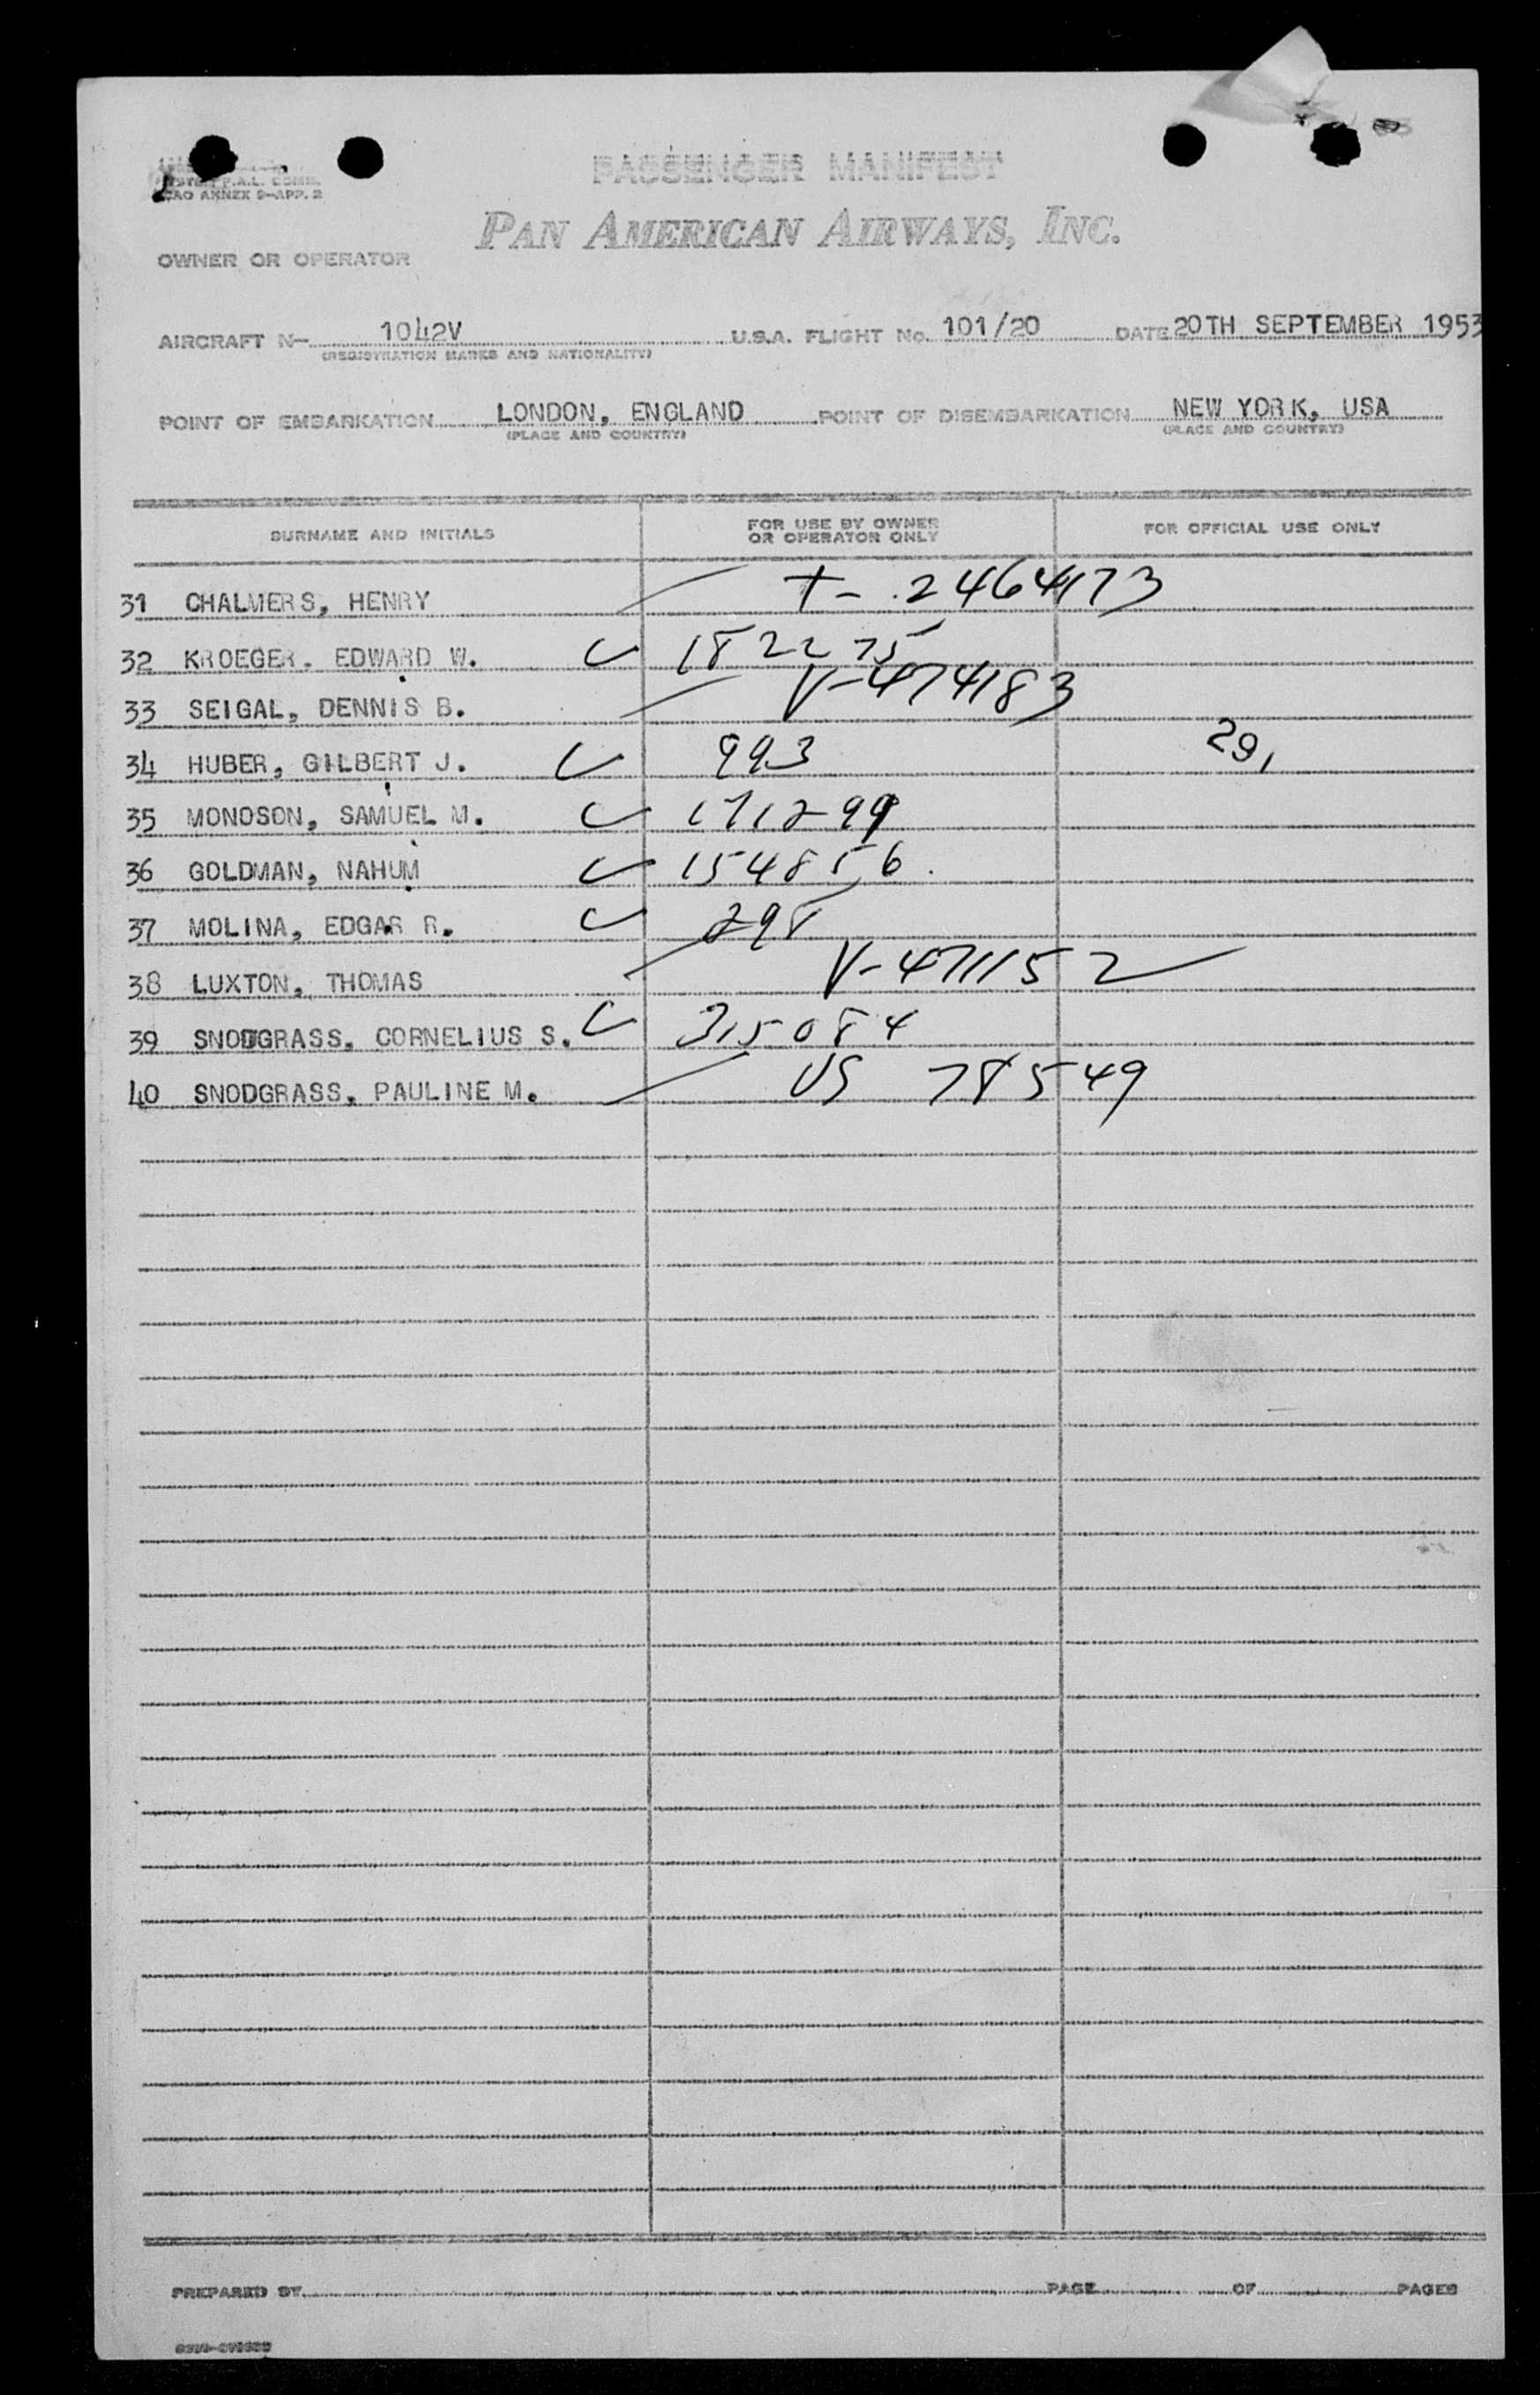 PASSENGER MANIFEST
P.A.L. COMM.
ICAO ANNEX 9-APP. 2
PAN AMERICAN AIRWAYS, INC.
OWNER OR OPERATOR
AIRCRAFT N- 1042V U.S.A. FLIGHT No. 101/20 DATE 20TH SEPTEMBER 1953
(REGISTRATION MARKS AND NATIONALITY)
POINT OF EMBARKATION LONDON, ENGLAND POINT OF DISEMBARKATION NEW YORK, USA
(PLACE AND COUNTRY) (PLACE AND COUNTRY)
SURNAME AND INITIALS FOR USE BY OWNER OR OPERATOR ONLY FOR OFFICIAL USE ONLY
31 CHALMERS, HENRY T- 2464173
32 KROEGER, EDWARD W. 182275
33 SEIGAL, DENNIS B. V-474183
34 HUBER, GILBERT J. 993 29,
35 MONOSON, SAMUEL M. 171299
36 GOLDMAN, NAHUM 154856
37 MOLINA, EDGAR R. 298
38 LUXTON, THOMAS V-471152
39 SNODGRASS, CORNELIUS S. 315084
40 SNODGRASS, PAULINE M. US 78549
PREPARED BY PAGE OF PAGES